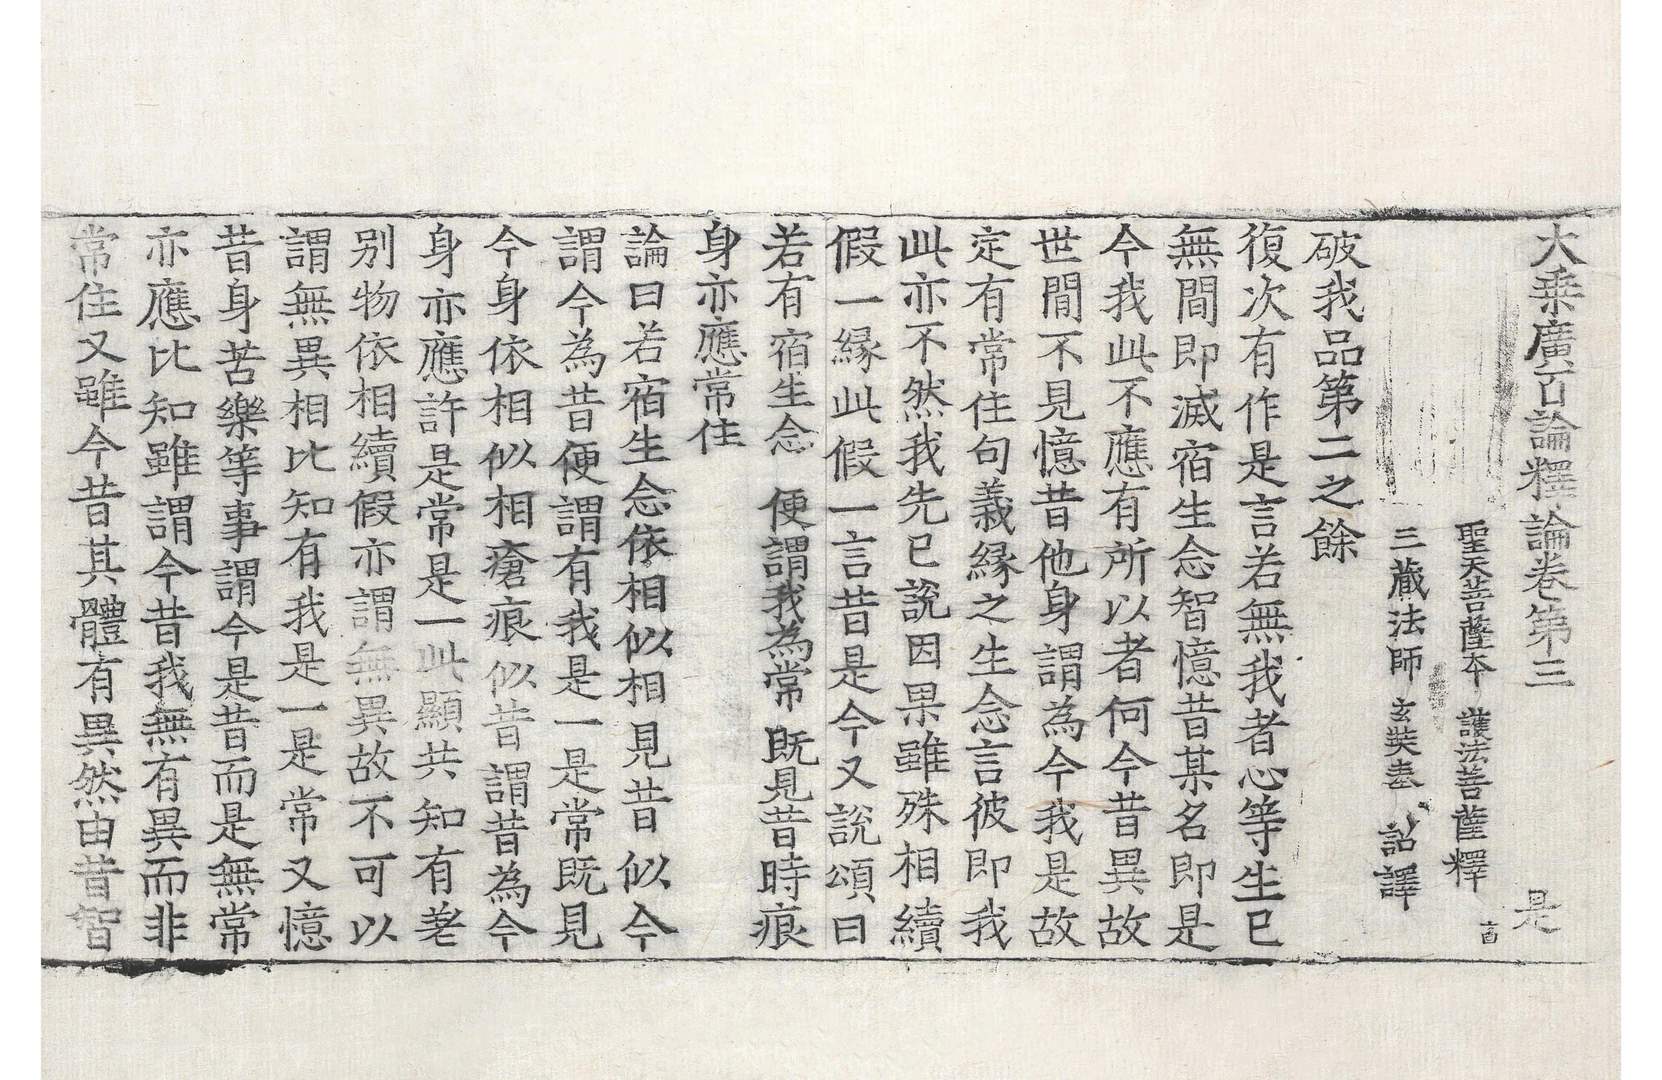 大乗廣百論釋論卷第三 是
聖天菩薩本 護法菩薩釋
三藏法師 玄奘奉 詔譯
破我品第二之餘
復次有作是言若無我者心等生已
無間即滅宿生念智憶昔某名即是
今我此不應有所以者何今昔異故
世間不見憶昔他身謂為今我是故
定有常住句義緣之生念言彼即我
此亦不然我先已說因果雖殊相續
假一緣此假一言昔是今又說頌曰
若有宿生念 便謂我為常 既見昔時痕
身亦應常住
論曰若宿生念依相似相見昔似今
謂今為昔便謂有我是一是常既見
今身依相似相瘡痕似昔謂昔為今
身亦應許是常是一此顯共知有差
別物依相續假亦謂無異故不可以
謂無異相比知有我是一是常又憶
昔身苦樂等事謂今是昔而是無常
亦應比知雖謂今昔我無有異而非
常住又雖今昔其體有異然由昔智